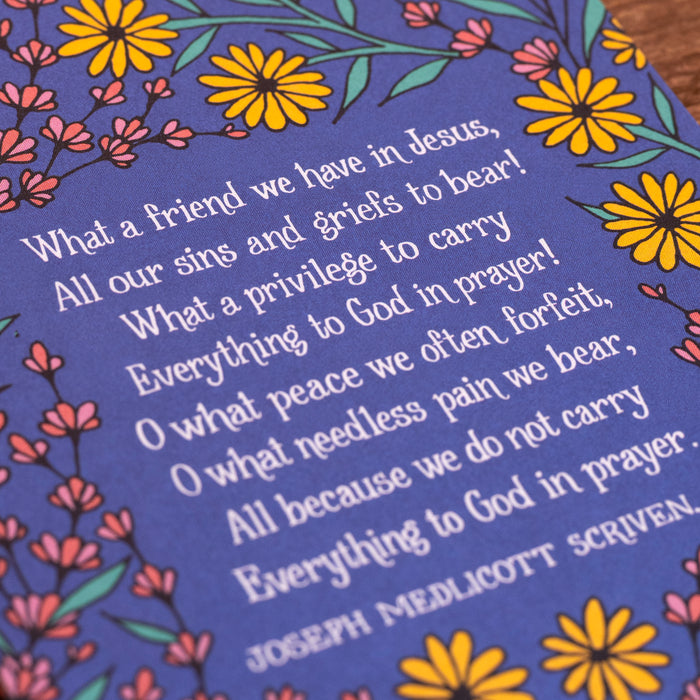 What a friend we have in Jesus,
All our sins and griefs to bear!
What a privilege to carry
Everything to God in prayer!
O what peace we often forfeit,
O what needless pain we bear,
All because we do not carry
Everything to God in prayer.
JOSEPH MEDLICOTT SCRIVEN.